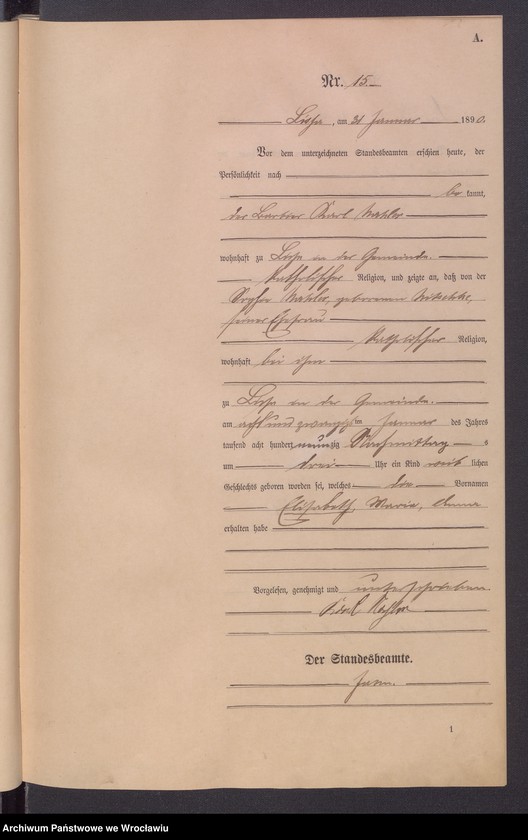 A.
Nr. 15.
Lissa, am 31 Januar 1890.
Vor dem unterzeichneten Standesbeamten erschien heute, der
Persönlichkeit nach
be kannt,
der Barbier Karl
wohnhaft zu Lissa in der Gemeinde.
katholischer Religion, und zeigte an, daß von der
Sophie geborenen Nitschke,
seiner Ehefrau
katholischer Religion,
wohnhaft bei ihm
zu Lissa in der Gemeinde.
am acht und zwanzigsten Januar des Jahres
tausend acht hundert neunzig Nachmittag s
um drei Uhr ein Kind weib lichen
Geschlechts geboren worden sei, welches die Vornamen
Elisabeth, Maria, Anna
erhalten habe
Vorgelesen, genehmigt und unterschrieben.
Der Standesbeamte.
1
Archiwum Państwowe we Wrocławiu